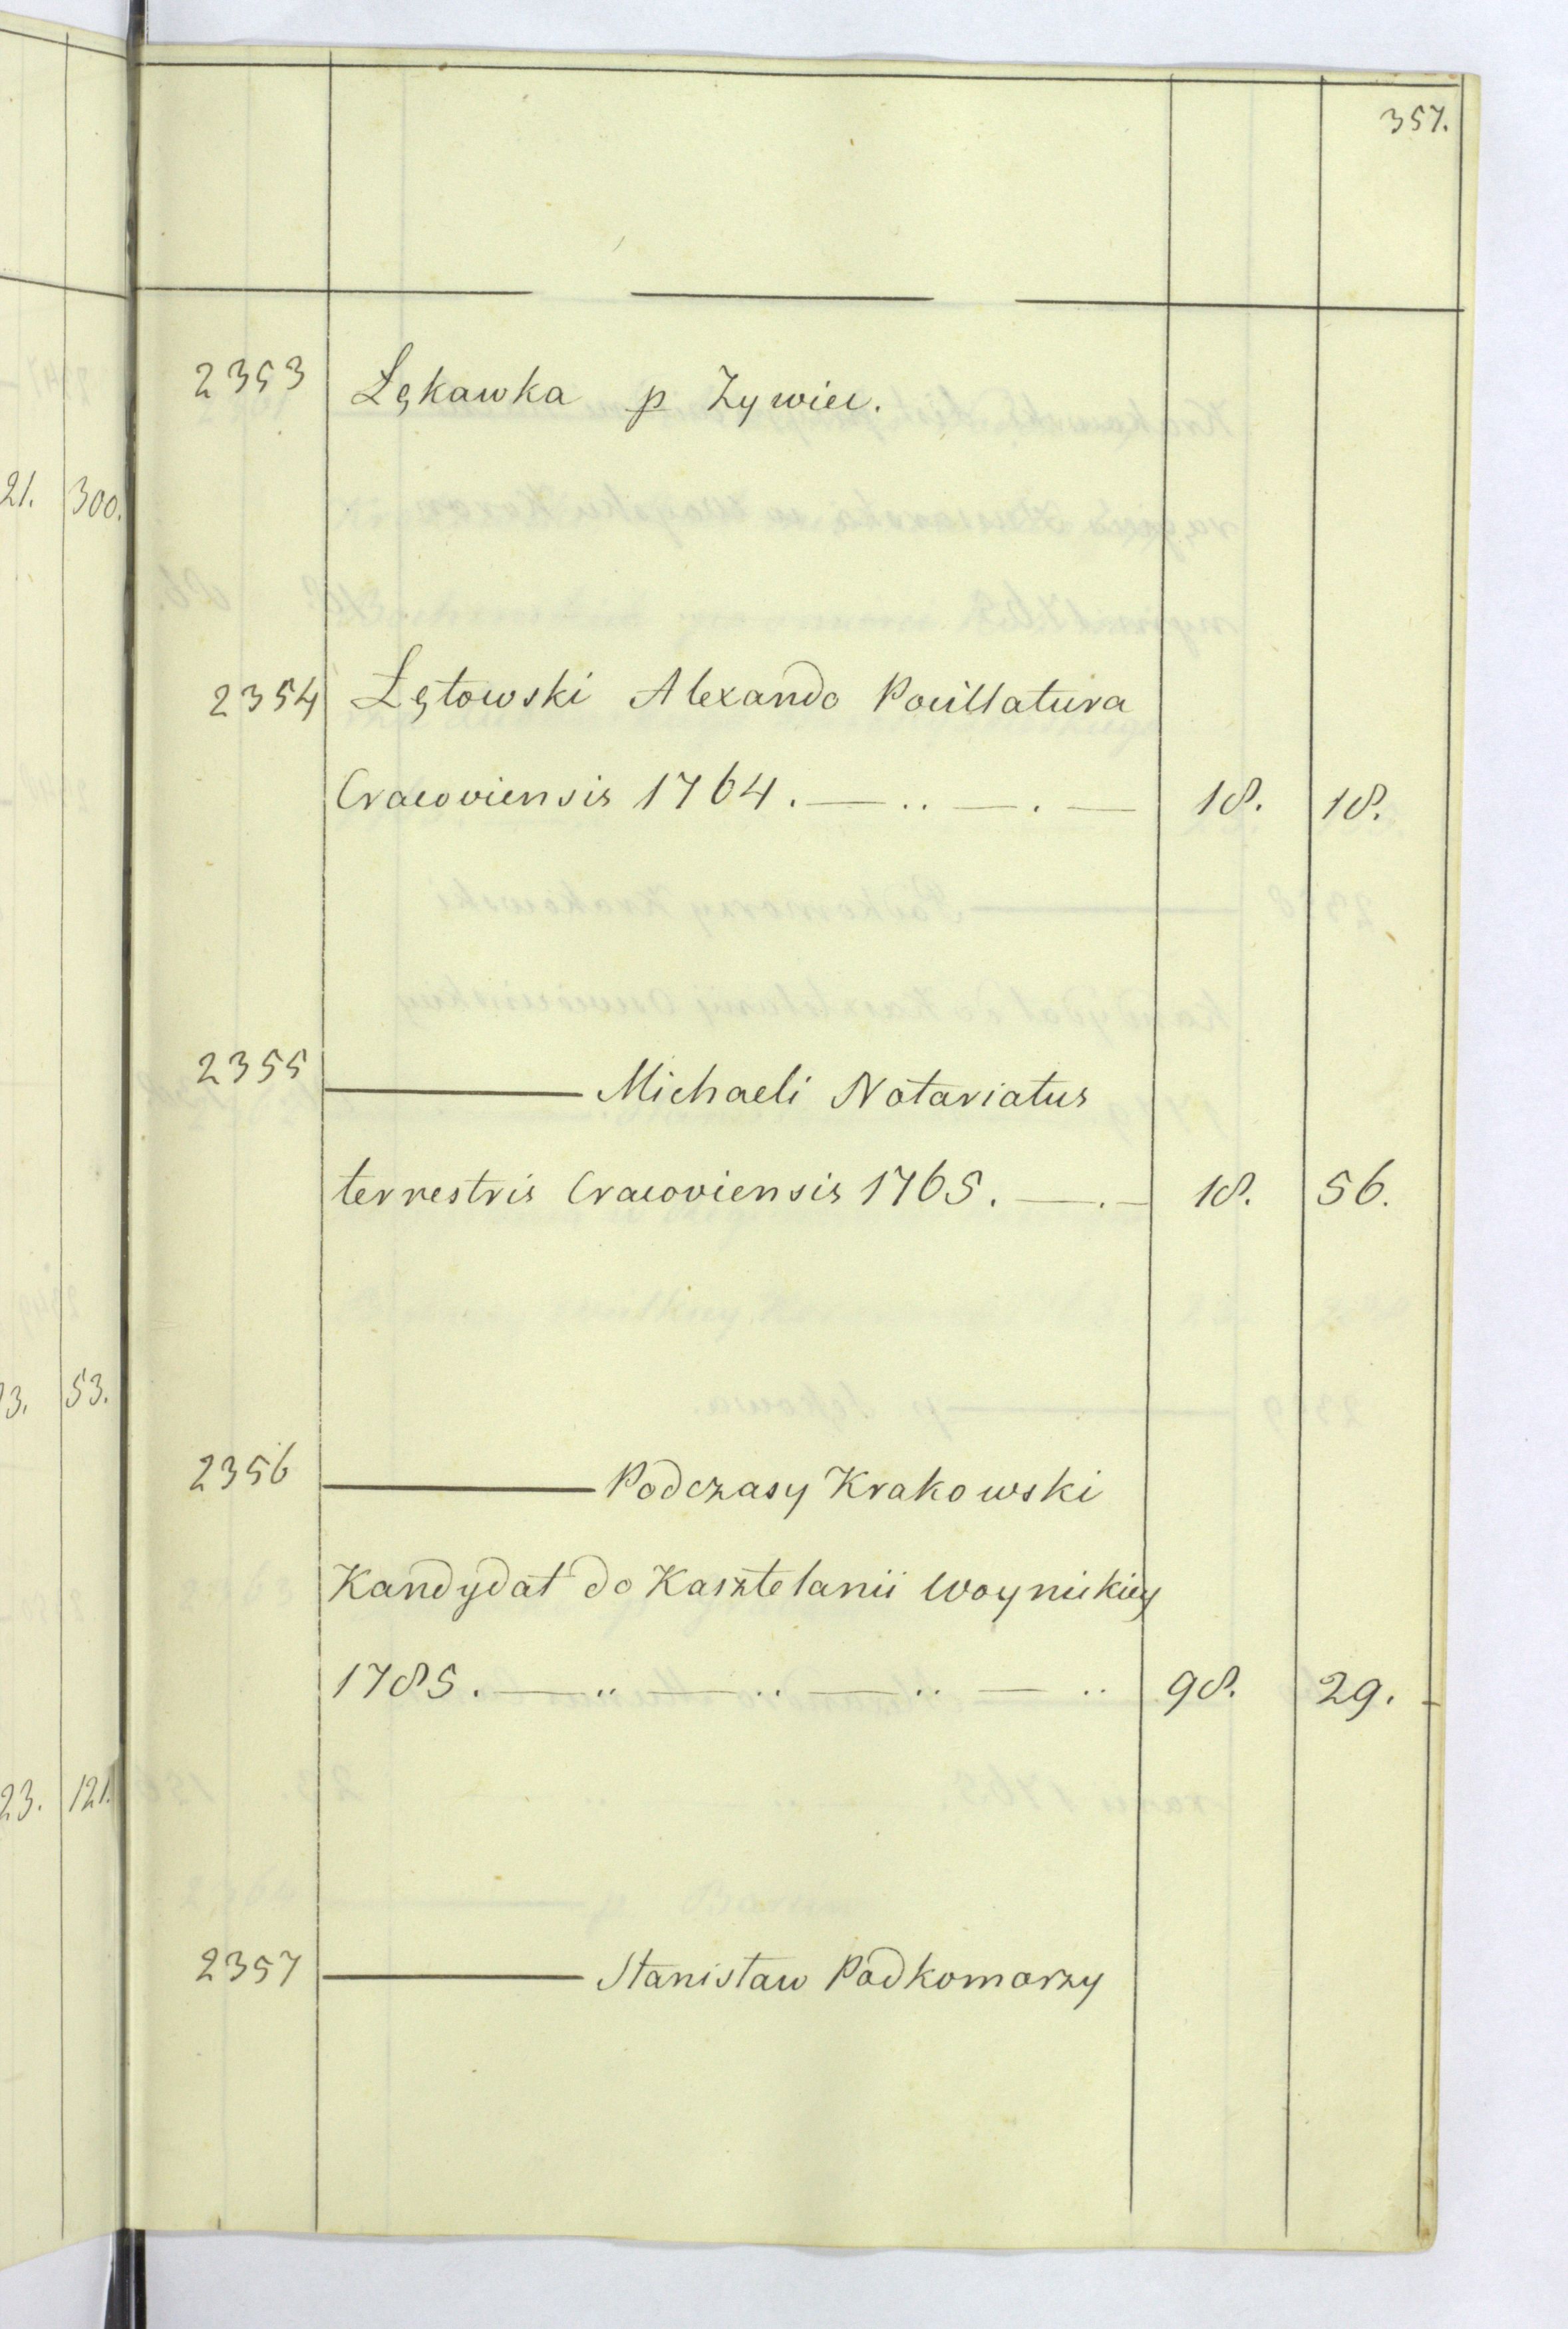 357.
2353 Łękawka p Zywiec.
21. 300.
2354 Łętowski Alexando Pocillatura
Cracoviensis 1764. — .. — . — 18. 18.
2355 ——— Michaeli Notariatus
terrestris Cracoviensis 1765. — . — 18. 56.
53.
2356 ——— Podczasy Krakowski
Kandydat do Kasztelanii Woynickiey
1785. — .. — .. — .. — .. 98. 29.
23. 121.
2357 ——— Stanisław Podkomorzy